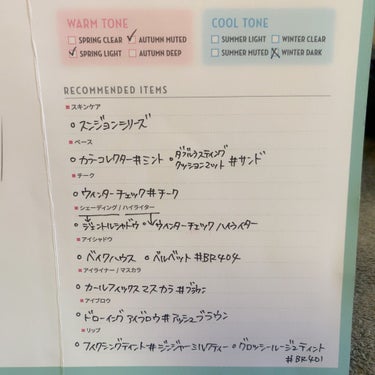 WARM TONE
SPRING CLEAR AUTUMN MUTED
SPRING LIGHT AUTUMN DEEP
COOL TONE
SUMMER LIGHT WINTER CLEAR
SUMMER MUTED WINTER DARK
RECOMMENDED ITEMS
スキンケア
スンジョンシリーズ
ベース
カラーコレクター#ミント ダブルラスティング
クッションマット #サンド
チーク
ウィンターチェック#チーク
シェーディング / ハイライター
ジェントルシャドウ ウィンターチェック ハイライター
アイシャドウ
ベイクハウス ベルベット #BR404
アイライナー / マスカラ
カールフィックスマスカラ #ブラウン
アイブロウ
ドローイングアイブロウ#アッシュブラウン
リップ
フィクシングティント#ジンジャーミルクティー グロッシールージュティント
#BR401